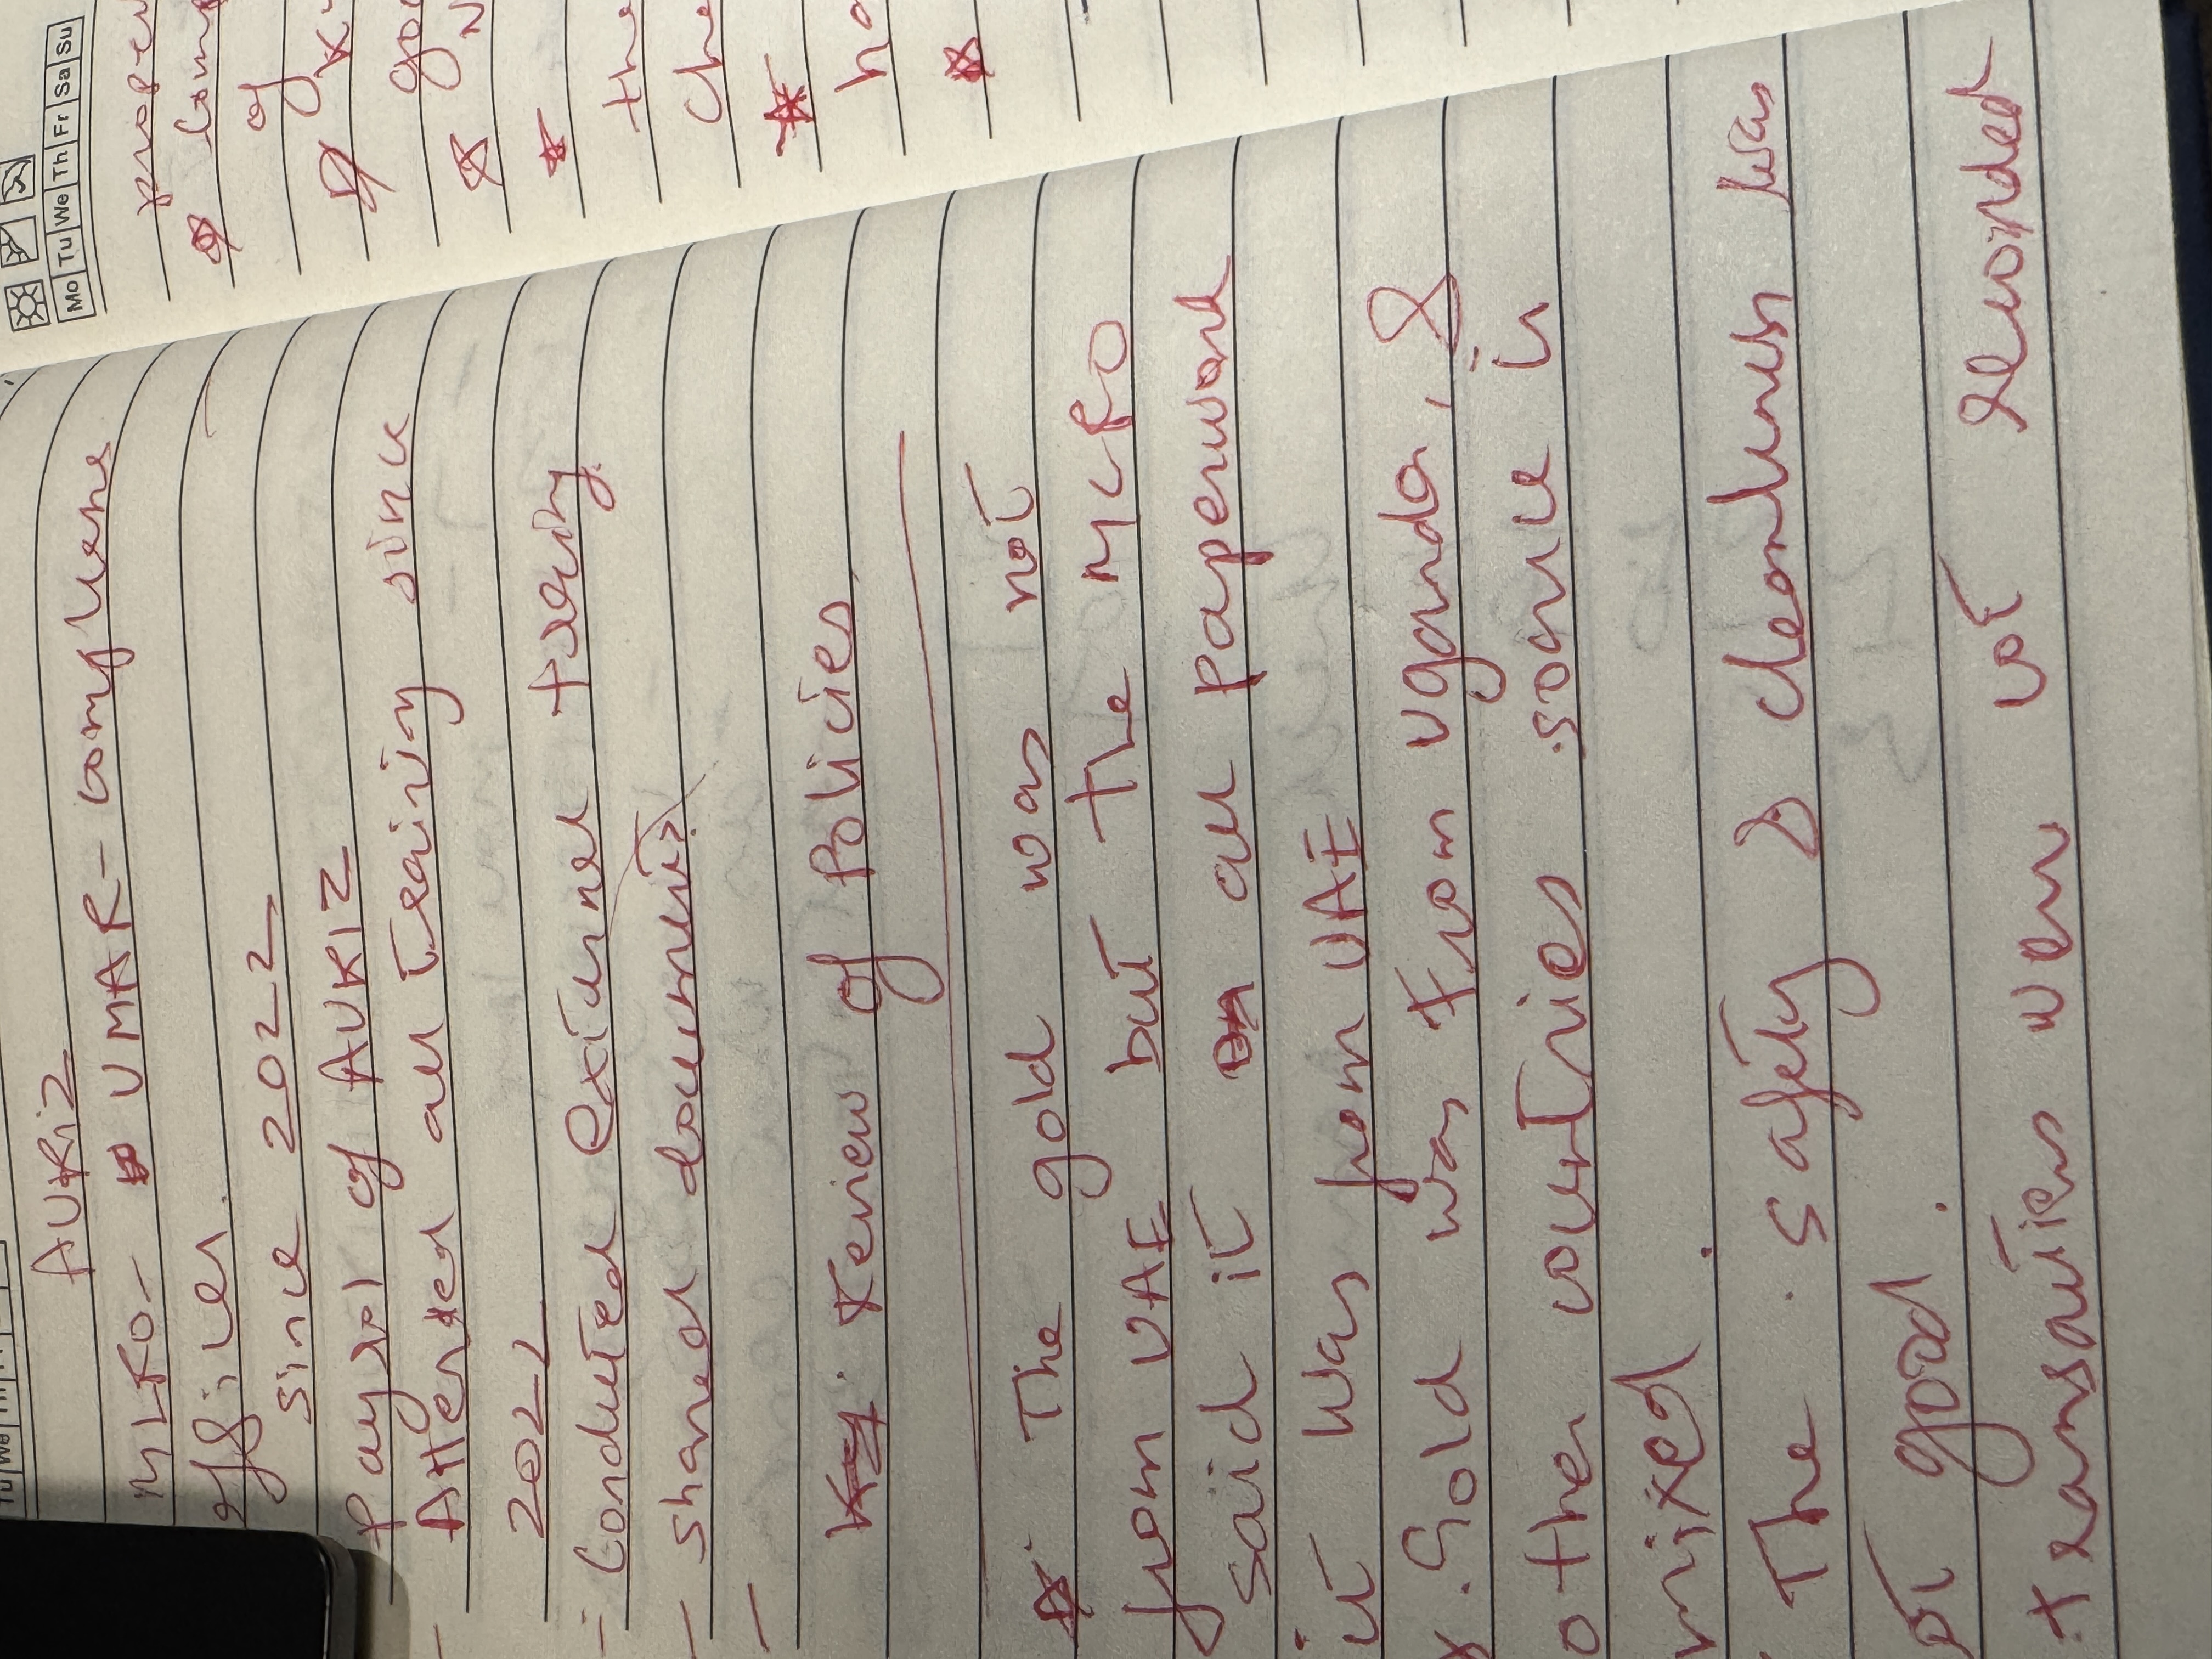 AURiZ
MLRO - UMAR - Complians
officer.
since 2022
Payrol of AURIZ
- Attended all Traiing since
2022
- Conducted external traing.
- shared documents
-
Review of Policies
The gold was not
from UAE but the MLRO
said it all paperwork
it was from UAE
Gold was from Uganda, &
other countries source is
mixed.
The safety & cleanliness was
not good.
transactions were not recorded
Mo Tu We Th Fr Sa Su
proper
of
the